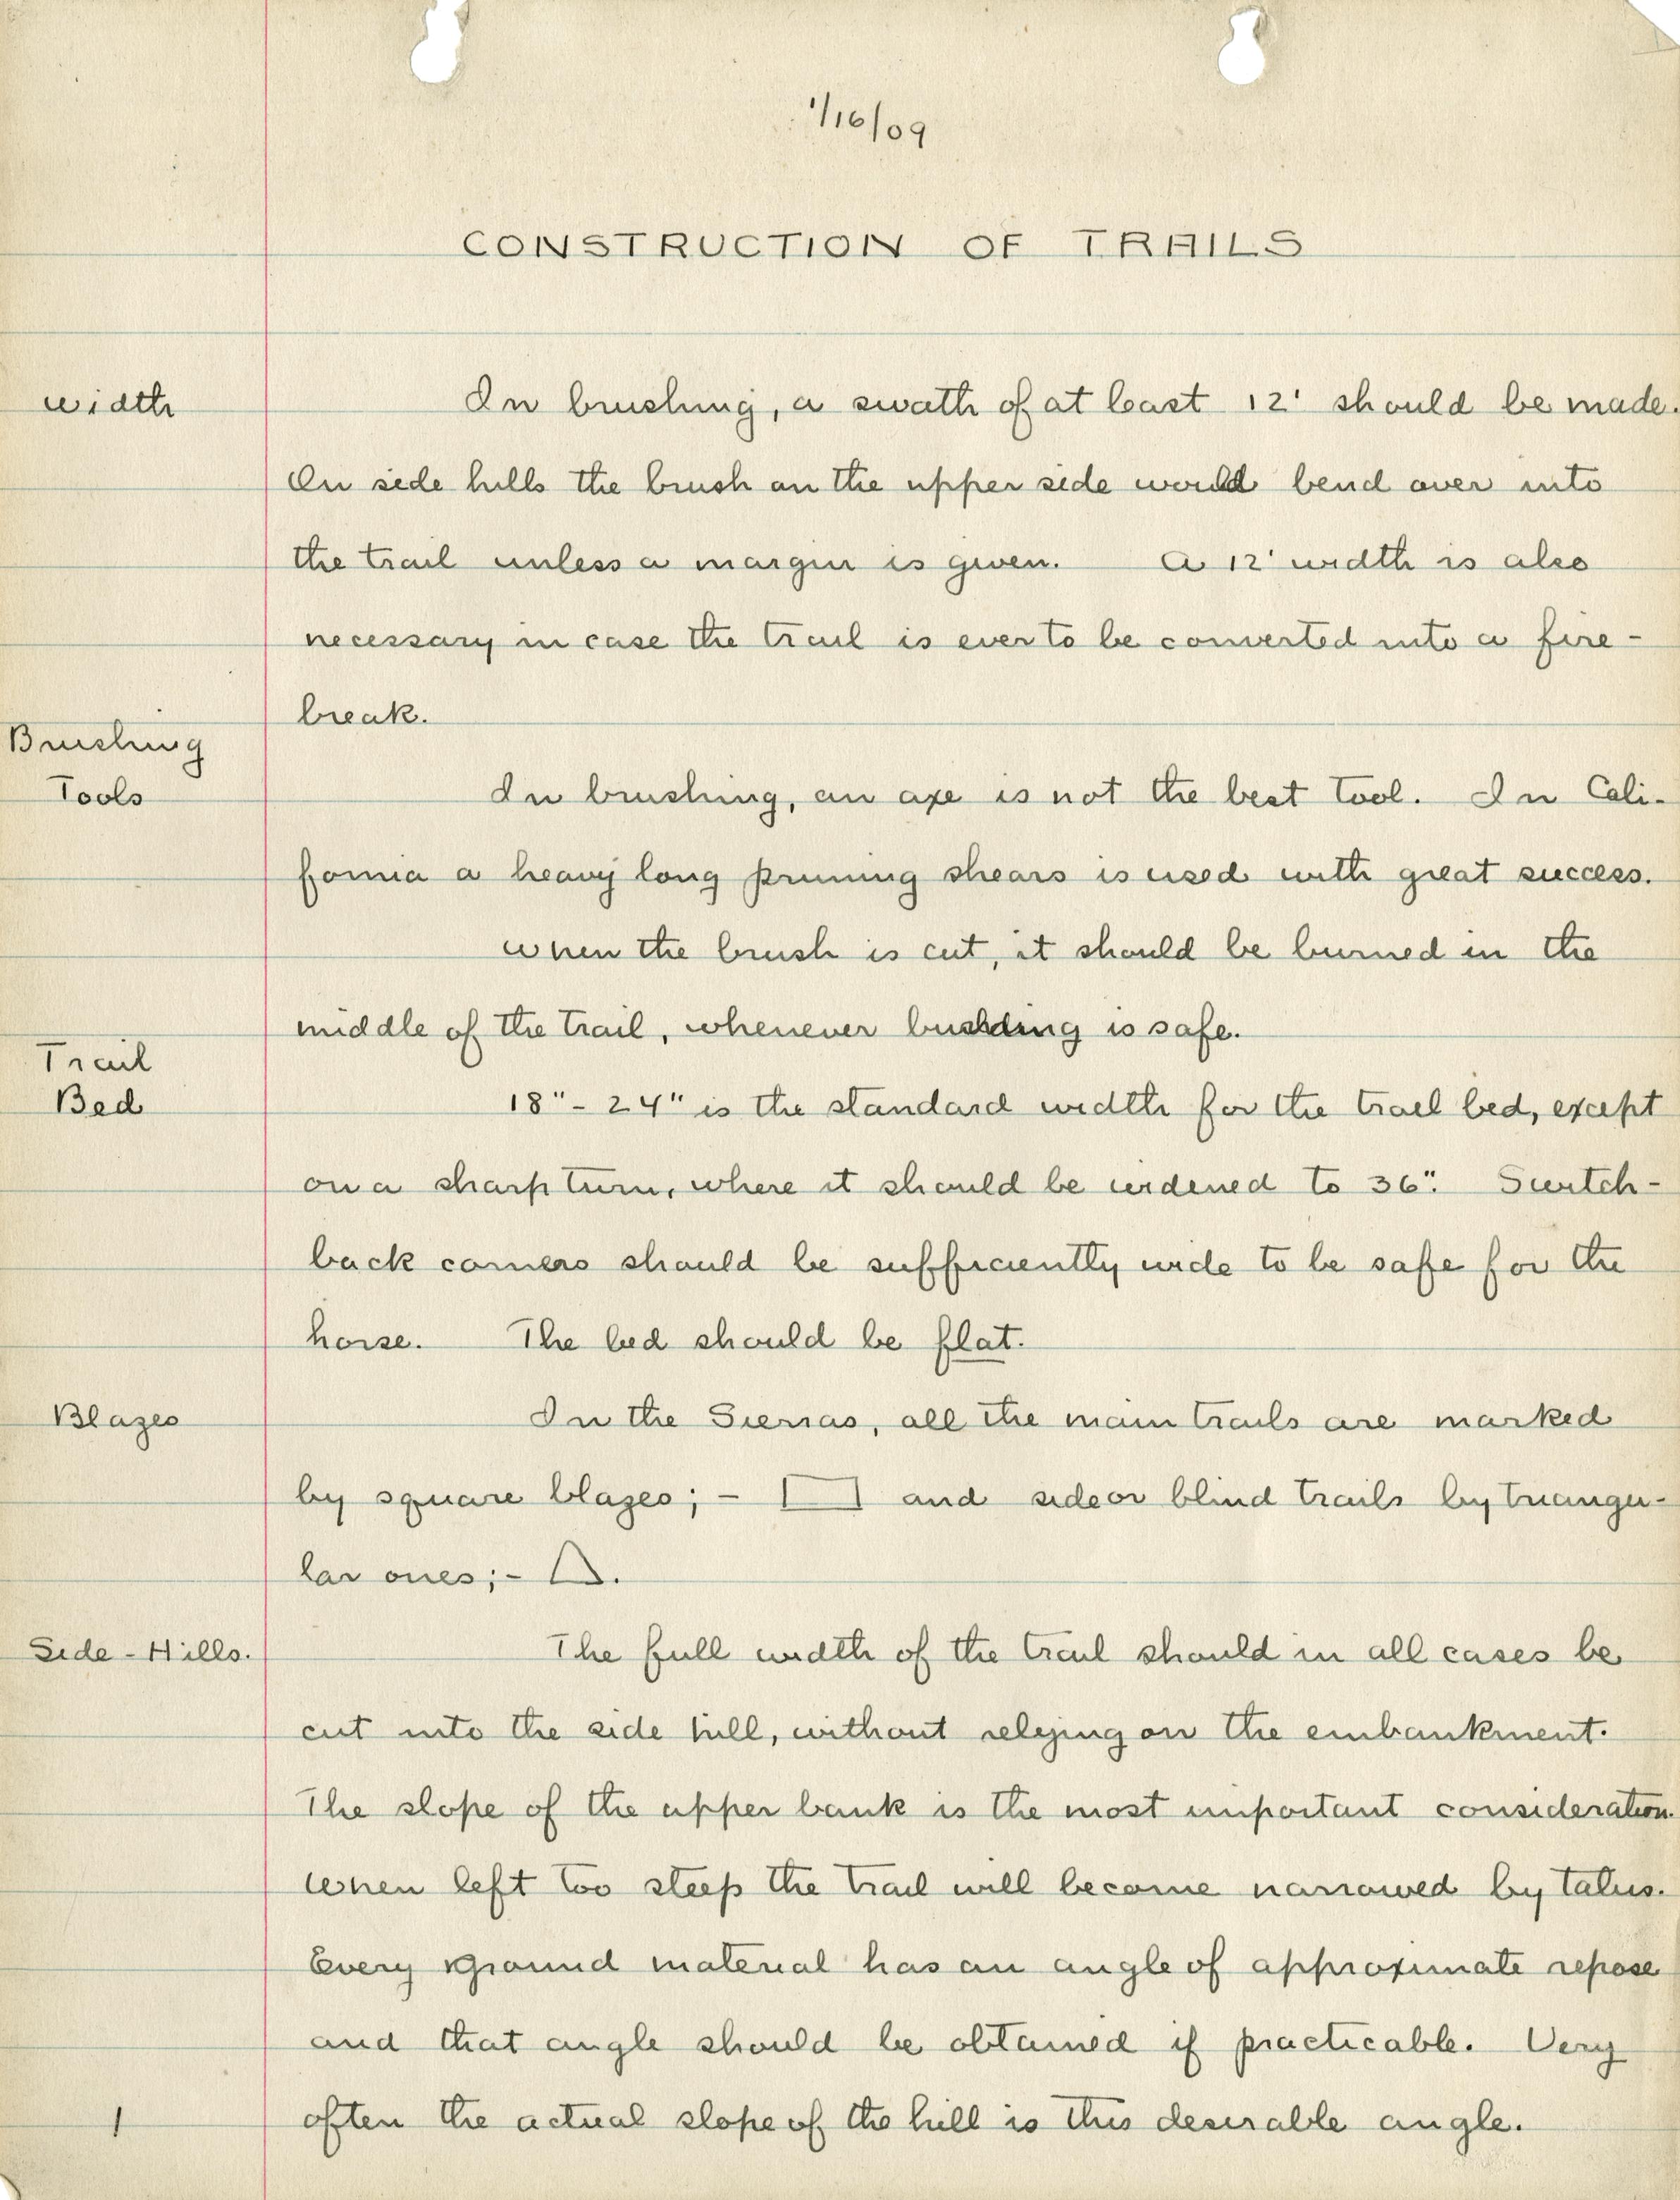 1/16/09
CONSTRUCTION OF TRAILS
Width
In brushing, a swath of at least 12' should be made.
On side hills the brush on the upper side would bend over into
the trail unless a margin is given. A 12' width is also
necessary in case the trail is ever to be converted into a fire-
break.
Brushing
Tools
In brushing, an axe is not the best tool. In Cali-
fornia a heavy long pruning shears is used with great success.
When the brush is cut, it should be burned in the
middle of the trail, whenever is safe.
Trail
Bed
18" - 24" is the standard width for the trail bed, except
on a sharp turn, where it should be widened to 36". Switch-
back corners should be sufficiently wide to be safe for the
horse. The bed should be flat.
Blazes
In the Sierras, all the main trails are marked
by square blazes; - and side or blind trails by triangu-
lar ones; - .
Side-Hills.
The full width of the trail should in all cases be
cut into the side hill, without relying on the embankment.
The slope of the upper bank is the most important consideration.
When left too steep the trail will become narrowed by talus.
Every ground material has an angle of approximate repose
and that angle should be obtained if practicable. Very
often the actual slope of the hill is this desirable angle.
1